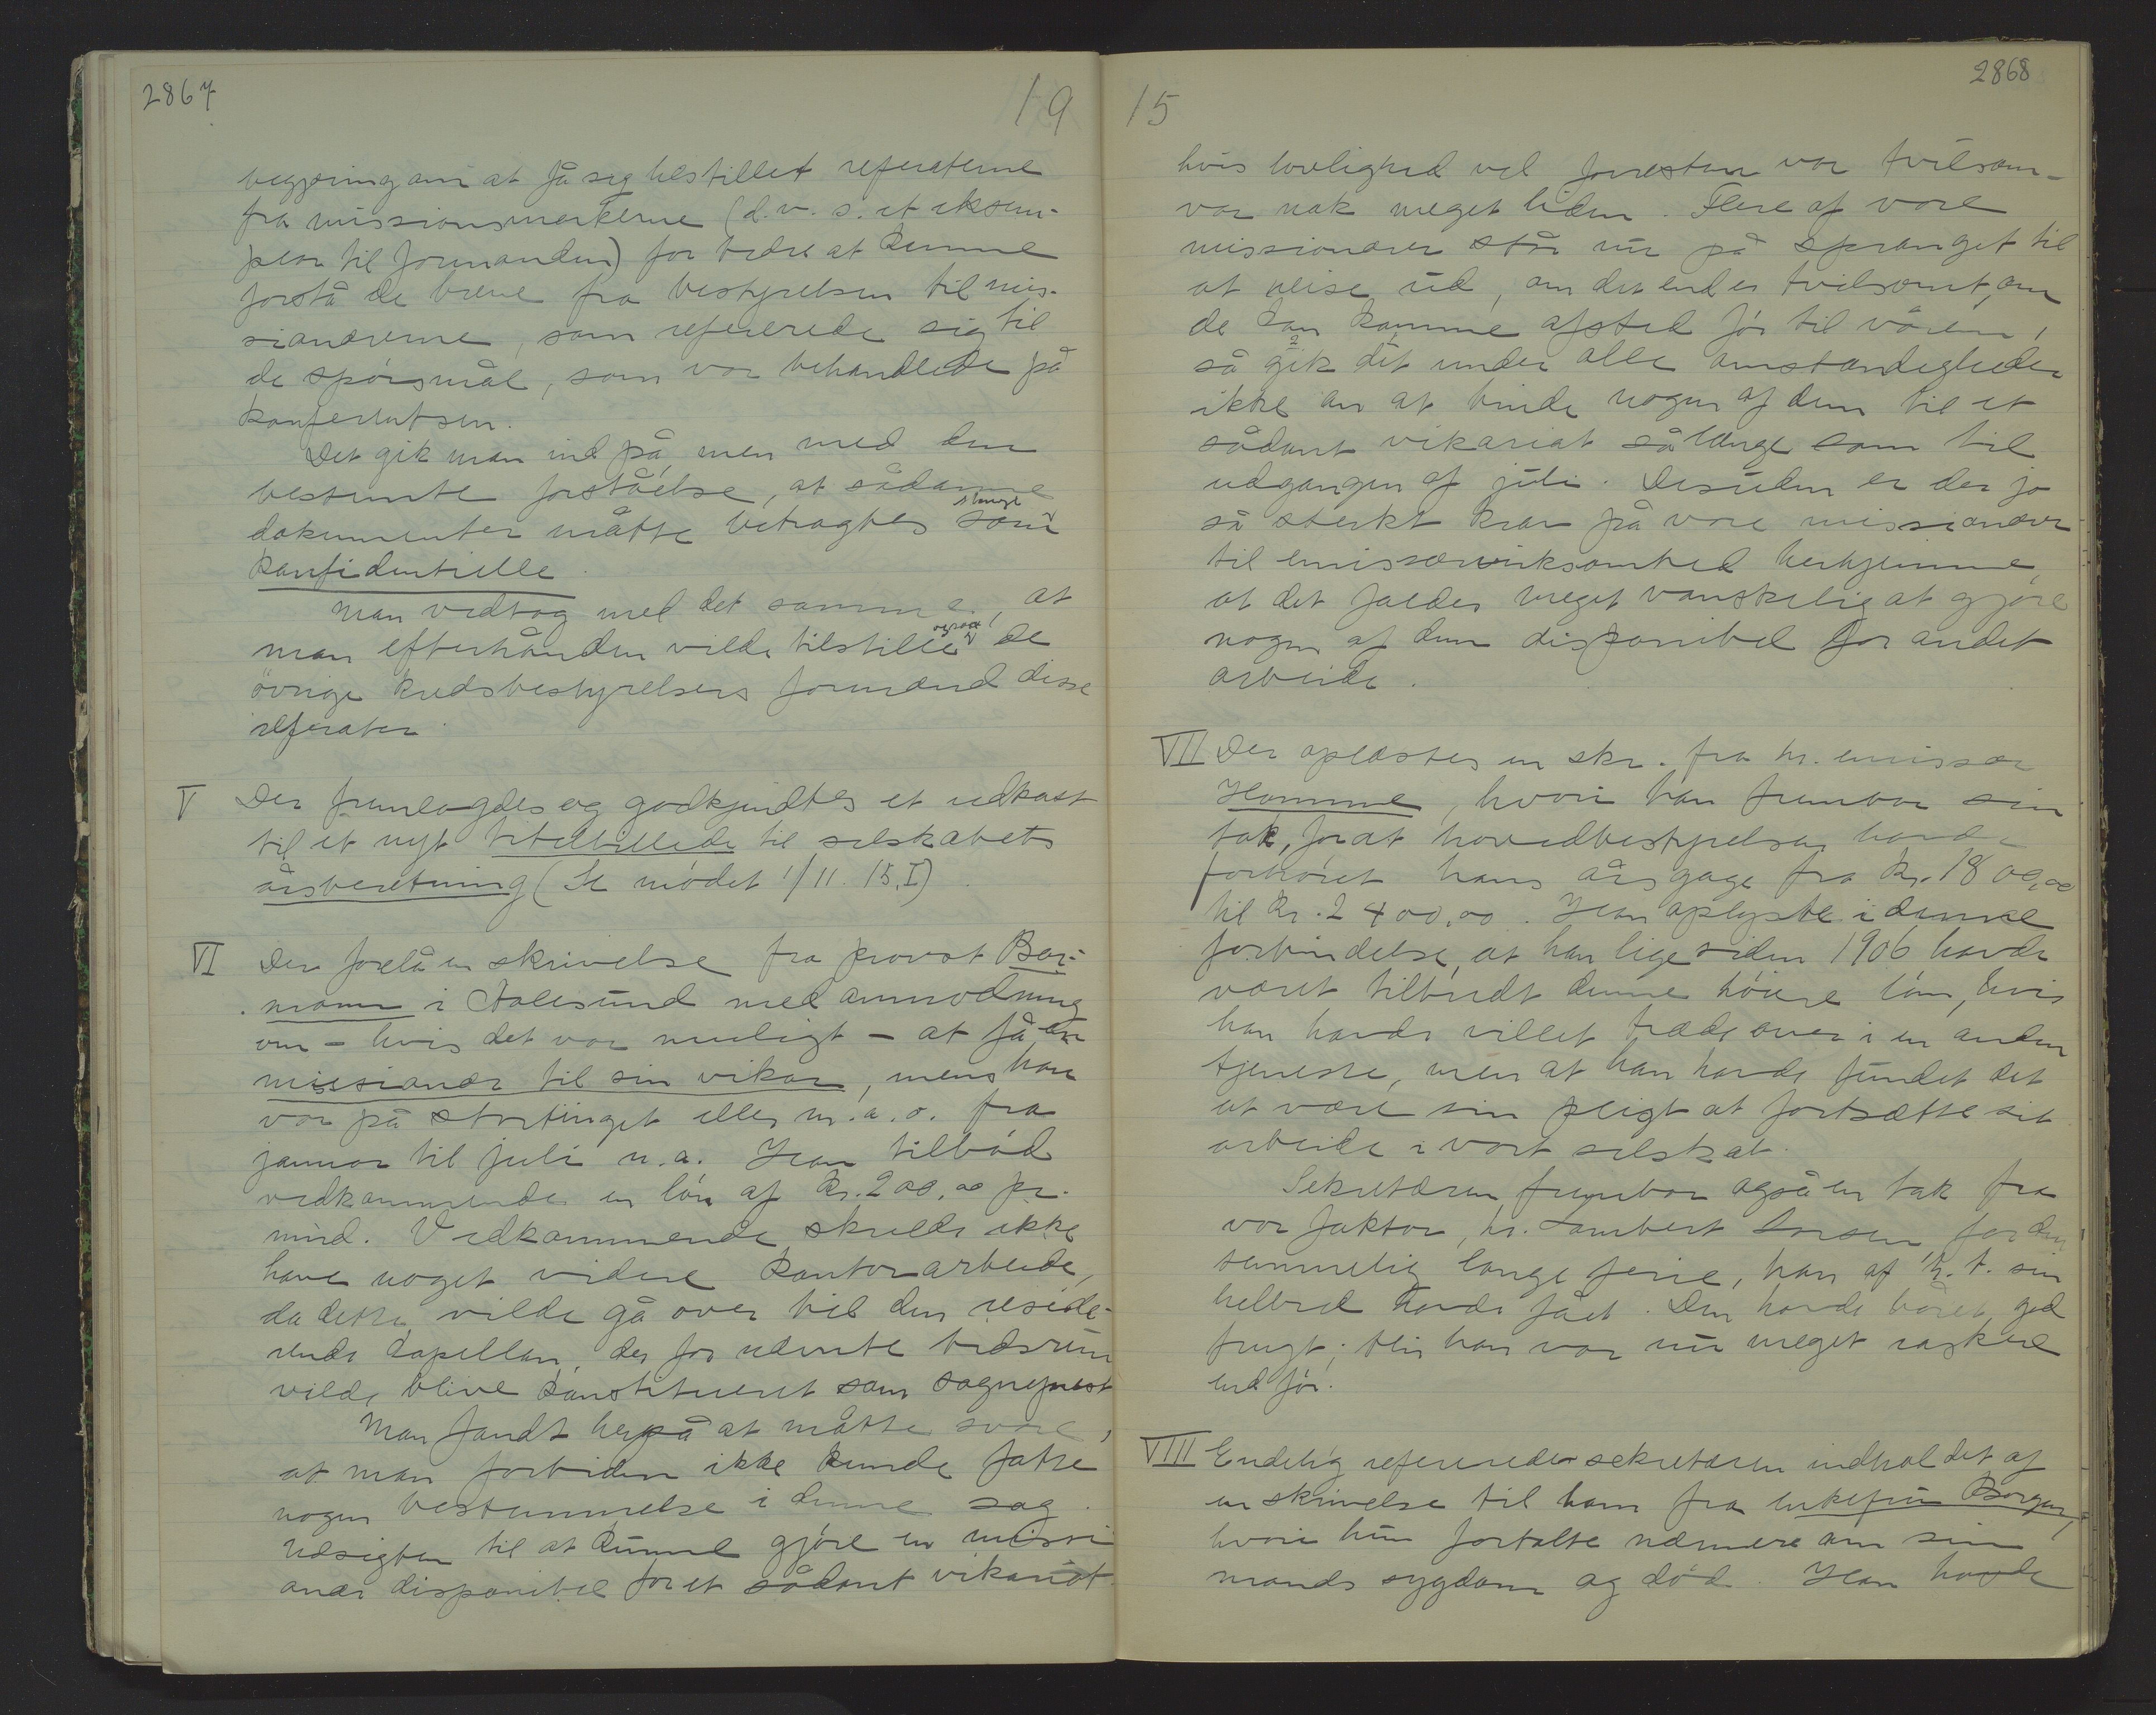 2867
19
begjæring om at få sig tilstillet referaterne
fra missionsmarkerne (d.v.s. et eksem-
plar til formanden) for bedre at kunne
forstå de breve fra bestyrelsen til mis-
sionærerne, som refererede sig til
de spörsmål, som var behandlede på
konferentsen.
Det gik man ind på, men med den
bestemte forståelse, at sådanne
dokumenter måtte betragtes strengt som
konfidentielle.
Man vedtog med det samme, at
man efterhånden vilde tilstille også de
övrige kredsbestyrelsers formænd disse
referater.
V Der fremlagdes og godkjendtes et udkast
til et nyt titelbillede til selskabets
årsberetning (Se mödet 1/11. 15, I).
VI Der forelå en skrivelse fra provst Bar-
mann i Aalesund med anmodning
om - hvis det var muligt - at få en
missionær til sin vikar, mens han
var på stortinget eller m. a. o. fra
januar til juli n. a. Han tilböd
vedkommende en lön af Kr. 200,00 pr.
mnd. Vedkommende skulde ikke
have noget videre kontorarbeide,
da dette vilde gå over til den reside-
rende kapellan, der for nævnte tidsrum
vilde blive konstitueret som sogneprest
Man fandt herpå at måtte svare,
at man forbiden ikke kunde fatte
nogen bestemmelse i denne sag.
Udsigten til at kunne gjöre en missi
onær disponibel for et sådant vikariat
15
2868
hvis lovlighed vel forresten var tvilsom -
var nok meget liden. Flere af vore
missionærer står nu på spranget til
at reise ud, om det end er tvilsomt, om
de kan komme afsted för til våren,
så gik det under alle omstændigheder
ikke an at binde nogen af dem til et
sådant vikariat så længe som til
udgangen af juli. Desuden er der jo
så sterkt krav på vore missionærer
til emissærvirksomhed herhjemme,
at det falder meget vanskelig at gjöre
nogen af dem disponibel for andet
arbeide.
VII Der oplæstes en skr. fra hr. emissær
Homme, hvori han frembar sin
tak, for at hovedbestyrelsen havde
forhöiet hans årsgage fra Kr. 1800,00
til Kr. 2400,00. Han oplyste i denne
forbindelse, at han lige siden 1906 havde
været tilbudt denne höiere lön, hvis
han havde villet træde over i en anden
tjeneste, men at han havde fundet det
at være sin pligt at fortsætte sit
arbeide i vort selskab.
Sekretæren frembar også en tak fra
vor faktor, hr. Lambert Larsen, for den
temmelig lange ferie, han af h. t. sin
helbred havde fået. Den havde båret god
frugt; thi han var nu meget raskere
end för.
VIII Endelig refererede sekretæren indholdet af
en skrivelse til ham fra enkefru Borgen,
hvori hun fortalte nærmere om sin
mands sygdom og död. Han havde